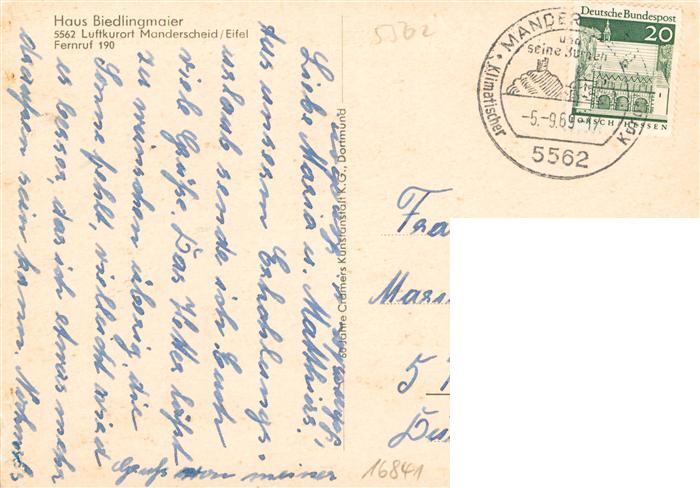 Haus Biedlingmaier
5562 Luftkurort Manderscheid/Eifel
Fernruf 190
5562
MANDER
und
seine Burgen
Klimatischer
-5.-9.69-17
Kur
5562
Deutsche Bundespost
20
LORSCH/HESSEN
60 Jahre Cramers Kunstanstalt K.G., Dortmund
Liebe Maria u. Matthias,
Aus unserm Erholungs-
urlaub sende ich Euch
viele Grüße. Das Wetter läßt
zu wünschen übrig, die
Sonne fehlt, vielleicht wird
es besser, das ich etwas mehr
draußen sein kann. Nochmals
Gruß von meiner
Fra
Mari
5
16841